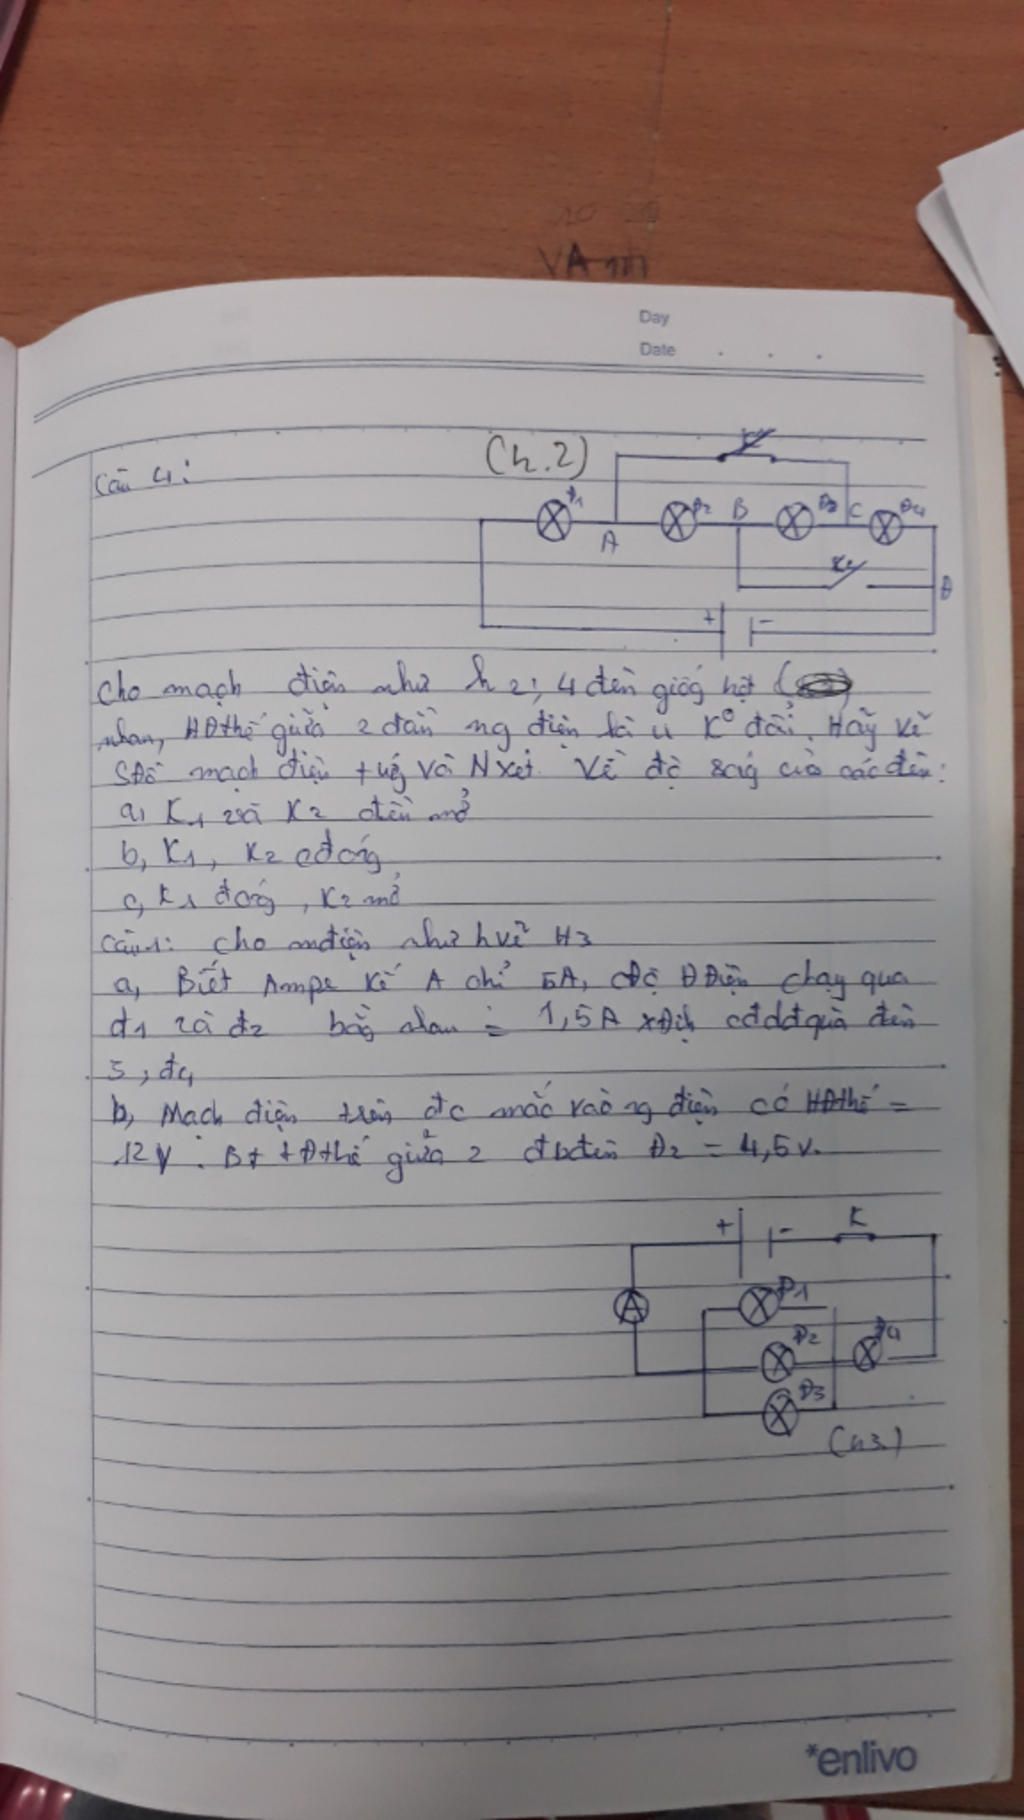 VA
Day
Date
Câu 4:
(h.2)
Đ1
A
Đ2
B
Đ3
C
Đ4
K2
D
+
-
Cho mạch điện như h2, 4 đèn giống hệt
nhau, HĐthế giữa 2 đầu ng điện là U K° đổi. Hãy vẽ
SĐồ mạch điện tứg và Nxét. Về độ ság của các đèn:
a, K1 và K2 đều mở
b, K1, K2 cđóng
c, K1 đóng, K2 mở
Câu 1: Cho mđiện như hvẽ H3
a, Biết Ampe kế A chỉ 5A, cđộ DĐiện chạy qua
đ1 và đ2 bằng nhau = 1,5A xĐịh cđdđ qua đèn
3, đ4
b, Mạch điện trên đc mắc vào ng điện có HĐthế =
12V. Bt HĐthế giữa 2 đ bđèn Đ2 = 4,5V.
+
-
K
A
Đ1
Đ2
Đ4
Đ3
(h3)
*enlivo